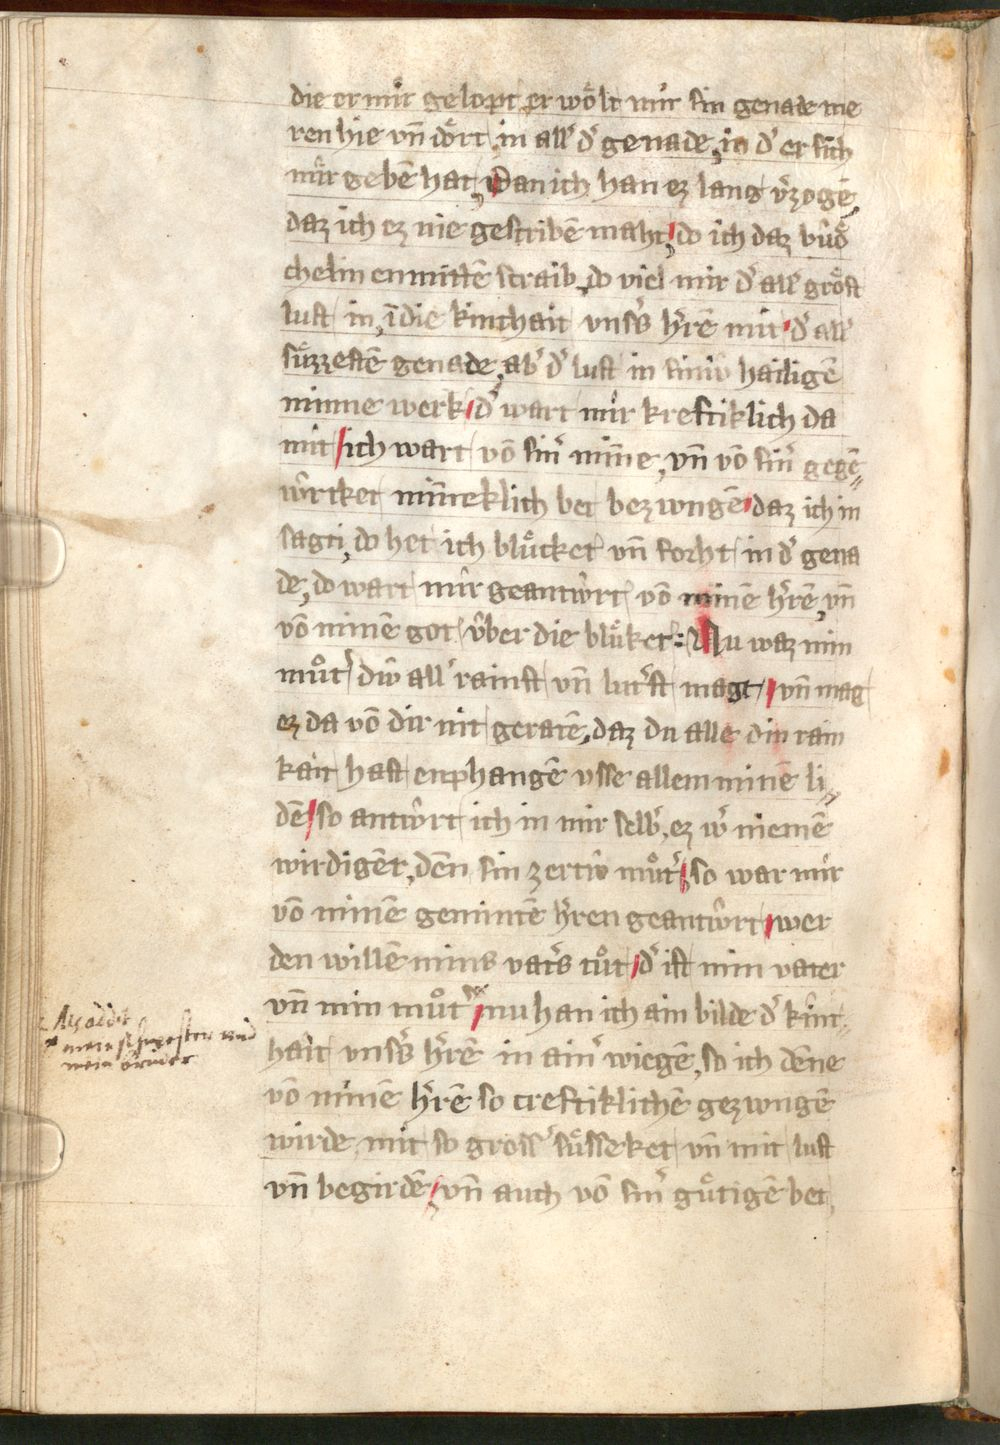 die er mir gelopt er wo̍lt mir sin genade me
ren hie vn̄ dórt, in all᾽ d᾽ genade, in d᾽ er sich
mir gebē hat, Dan ich han ez lang v᾽zogē,
daz ich ez nie gescribē maht, do ich daz bůͤ
chelin enmittē scraib, do viel mir d᾽ all᾽ gröst
lust in, ī die kinthait vns᾽s h᾽rē mit d᾽ all᾽
süzzestē genade, ab᾽ d᾽ lust in siniv hailigē
minne werk d᾽ wart mir kreftiklich da
mit ich wart vō sin᾽ min̄e, vn̄ vō sin᾽ gegē„
würtket min̄eklich bet bezwngē daz ich in
sagti, do het ich blůket᾽ vn̄ forht in d᾽ gena
de, do wart mir geantwrt vō minē h᾽rē, vn̄
vō minē got v̂ber die blůket᾽: Nu waz min
můt᾽ div̂ all᾽ rainst vn̄ lut᾽st magt, vn̄ mag
ez da vō dir nit geratē, daz du alle din rain
kait hast enphangē vsse allem minē li„
dē so antwrt ich in mir selb᾽, ez w᾽ niemē
wirdiger, denn sin zertiv můt᾽ so war mir
vō minē gemintē h᾽ren geantwrt wer
den willē mins vat᾽s tůt d᾽ ist min vater
vn̄ min můt᾽ nu han ich ain bilde d᾽ kint„
hait vns᾽s h᾽rē in ain᾽ wiegē, so ich dēne
vō minē h᾽rē so creftiklichē gezwngē
wirde, mit so gross᾽ süsseket vn̄ mit lust
vn̄ begirdē, vn̄ auch vō sin᾽ gůtigē bet,
addit
mein schwester vnd
mein brüder